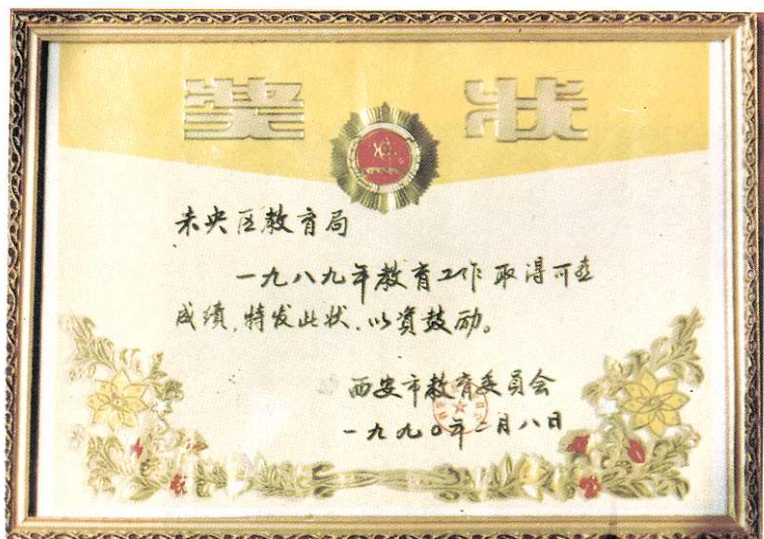 奖状
未央区教育局
一九八九年教育工作取得可喜
成绩,特发此状,以资鼓励。
西安市教育委员会
一九九〇年二月八日